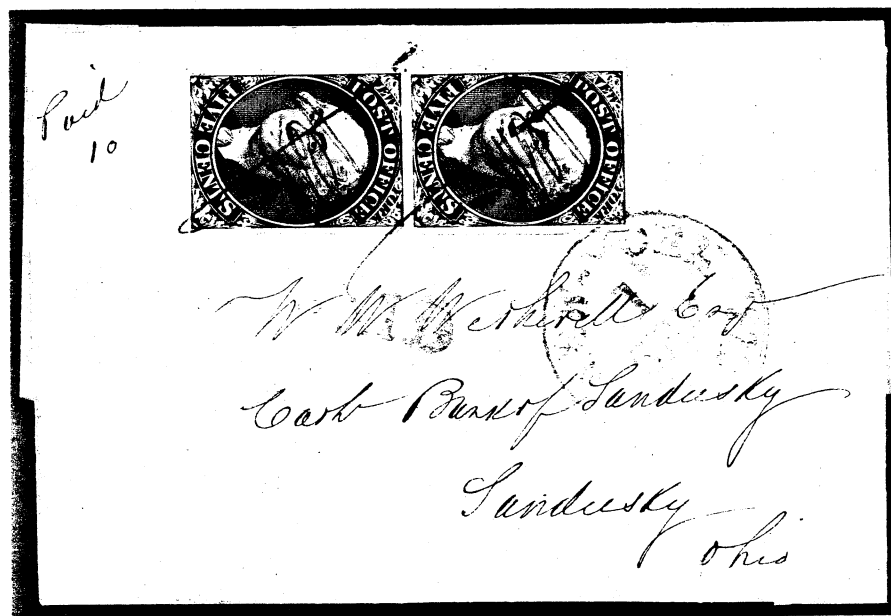 Paid
10
POST OFFICE
FIVE CENTS
POST OFFICE
FIVE CENTS
W W Wetherell Esq
Cash Bank of Sandusky
Sandusky
Ohio